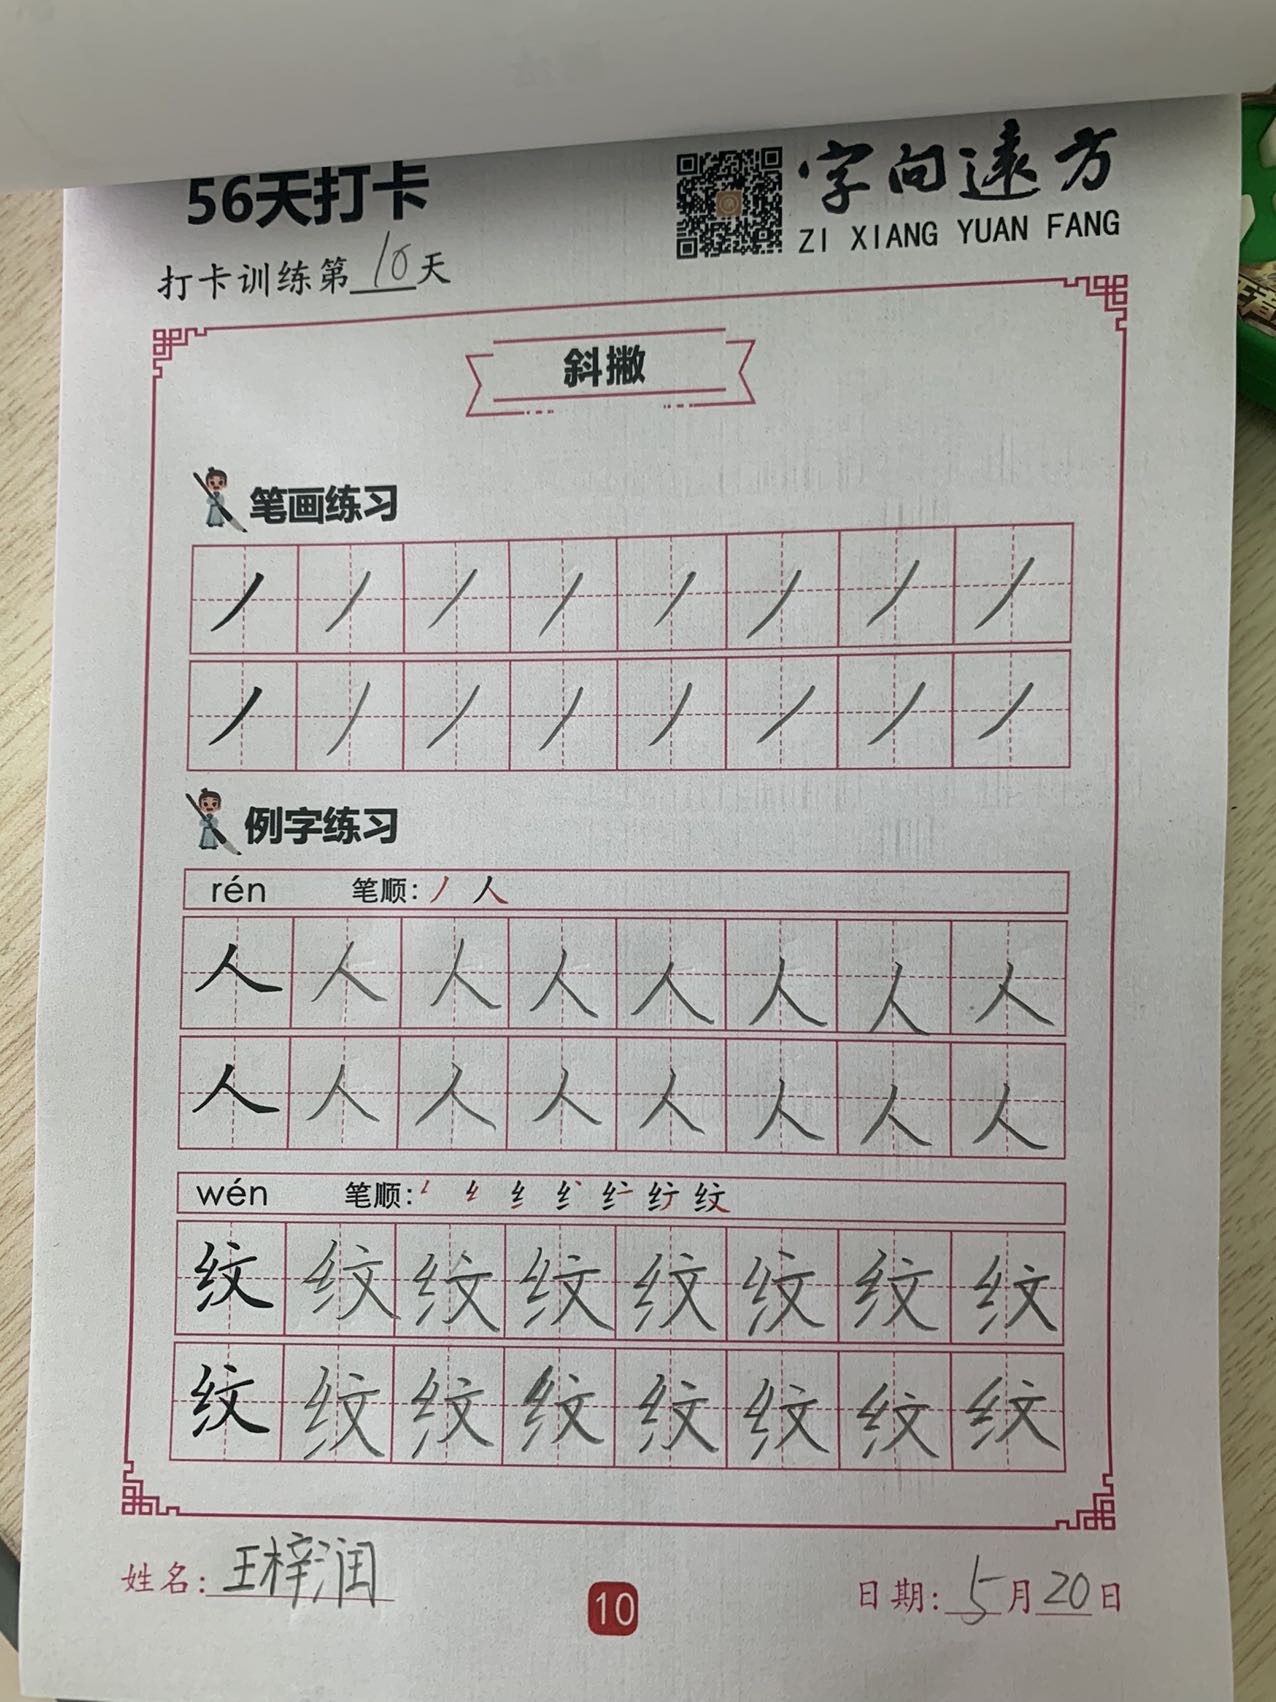 56天打卡
字向远方
ZI XIANG YUAN FANG
打卡训练第10天
斜撇
笔画练习
丿 丿 丿 丿 丿 丿 丿 丿
丿 丿 丿 丿 丿 丿 丿 丿
例字练习
rén 笔顺: 丿 人
人 人 人 人 人 人 人 人
人 人 人 人 人 人 人 人
wén 笔顺: 纹
纹 纹 纹 纹 纹 纹 纹 纹
纹 纹 纹 纹 纹 纹 纹 纹
姓名: 王梓润
10
日期: 5月20日